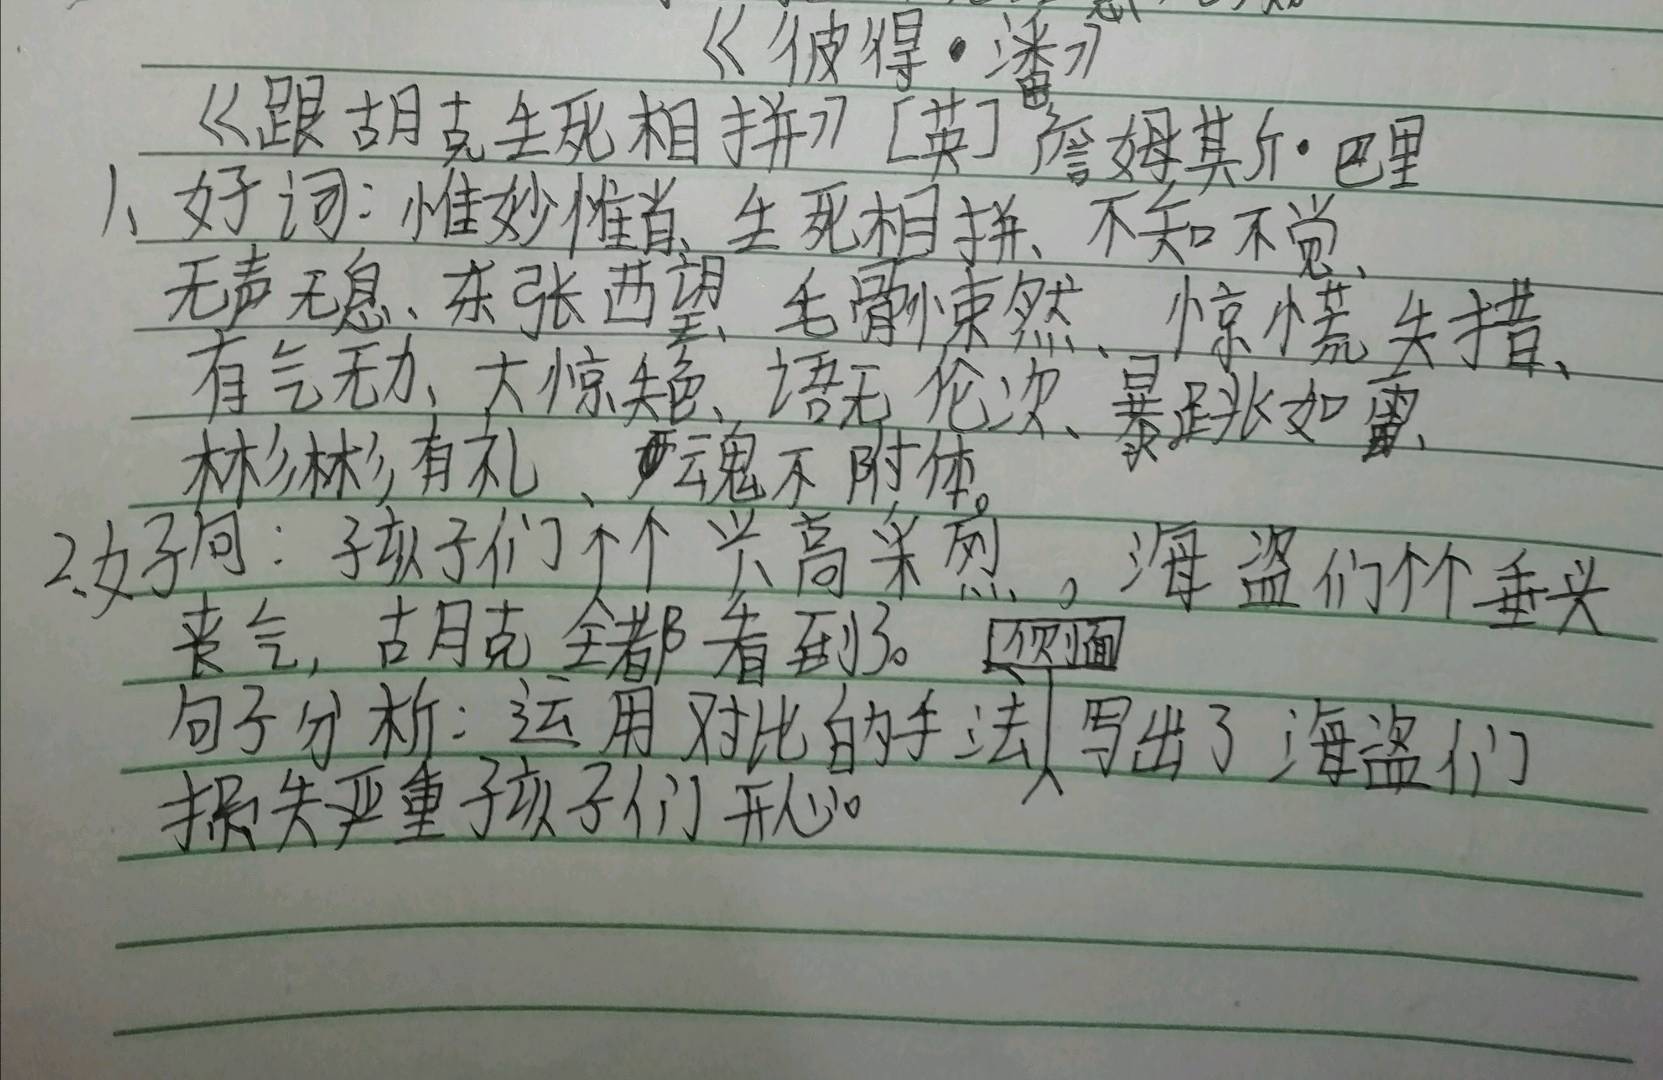 《彼得·潘》
《跟胡克生死相拼》[英]詹姆其斤·巴里
1、好词：惟妙惟肖、生死相拼、不知不觉、
无声无息、东张西望、毛骨悚然、惊慌失措、
有气无力、大惊失色、语无伦次、暴跳如雷、
彬彬有礼、魂不附体。
2.好句：孩子们个个兴高采烈，海盗们个个垂头
丧气，胡克全都看到了。侧面
句子分析：运用对比的手法写出了海盗们
损失严重孩子们开心。